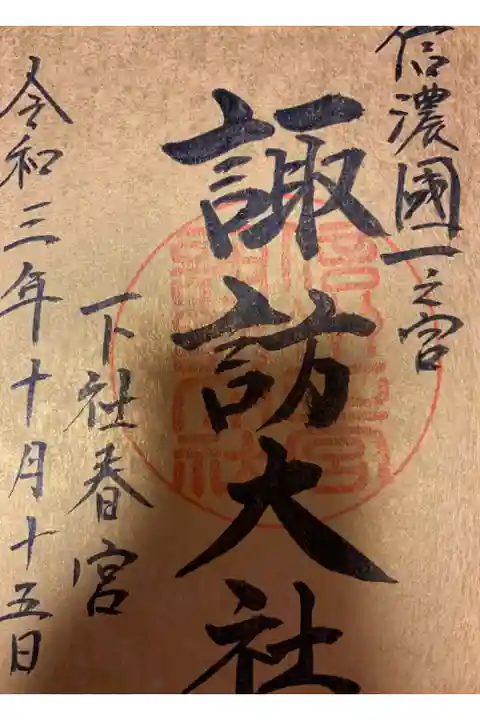 信濃國一之宮
諏訪大社
下社春宮
令和三年十月十五日